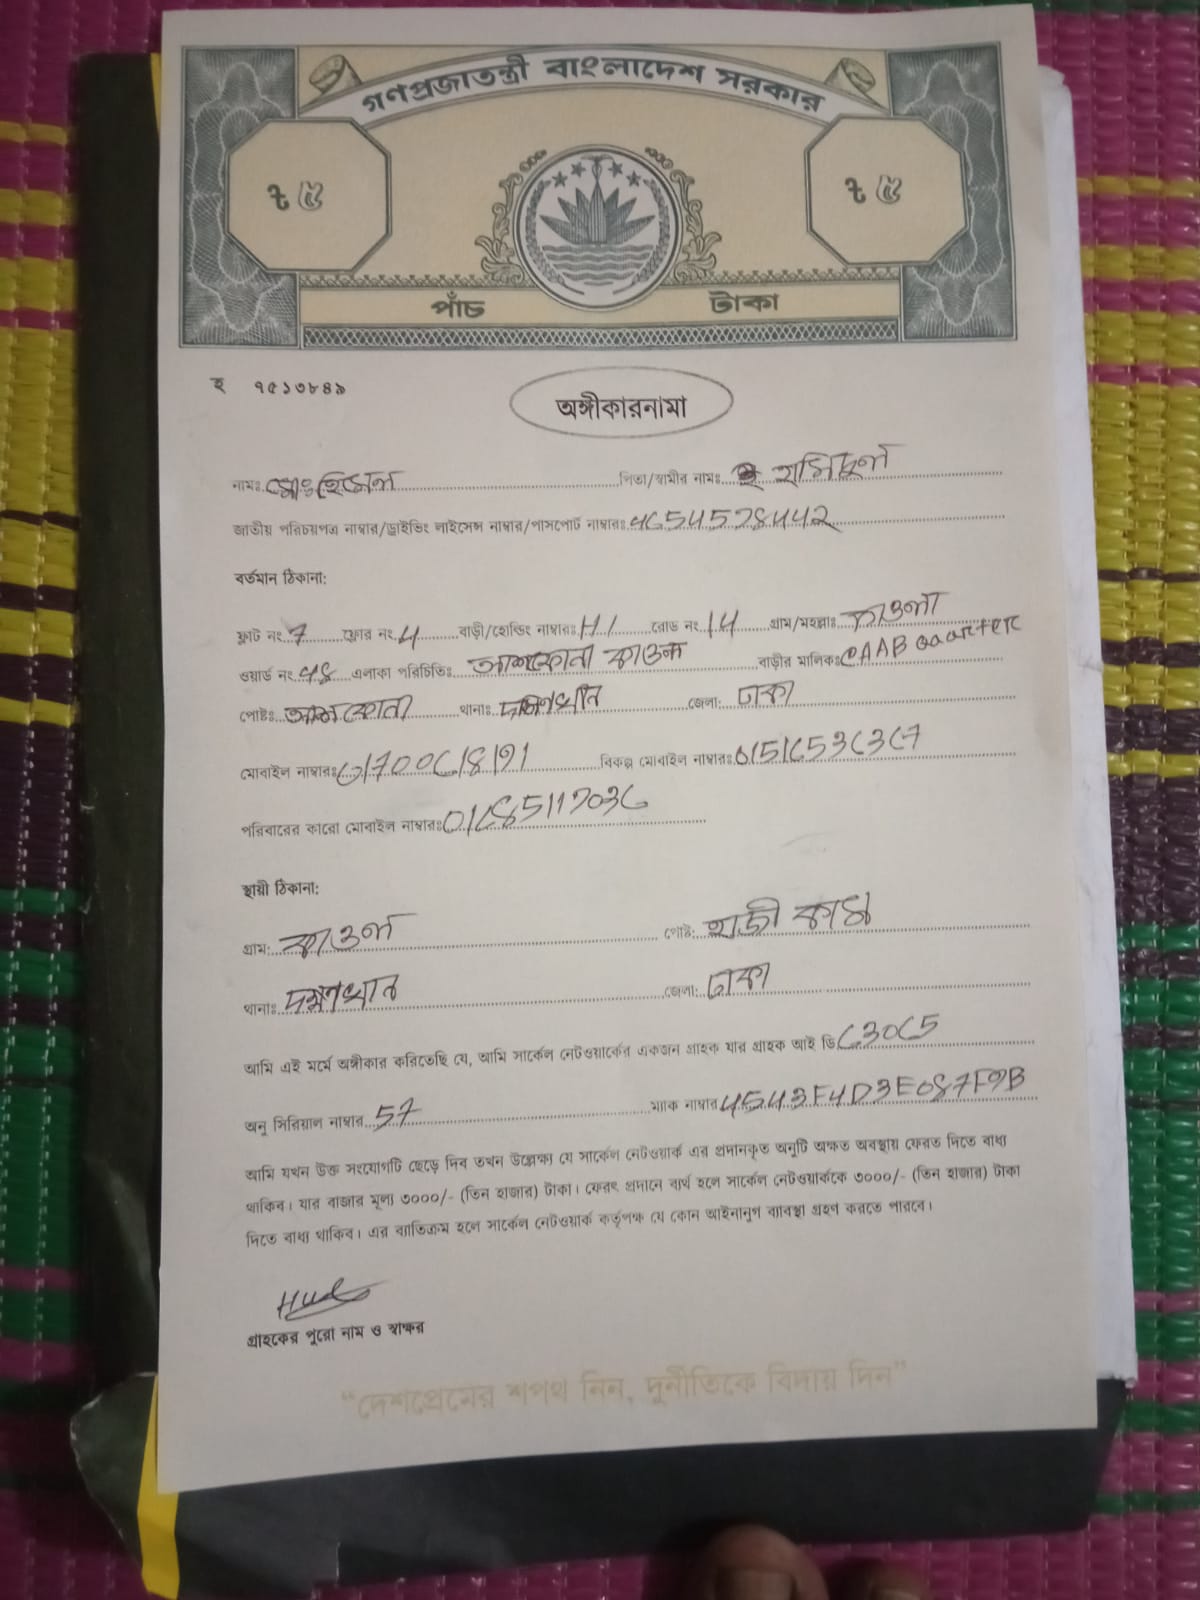 গণপ্রজাতন্ত্রী বাংলাদেশ সরকার
৳ ৫ ৳ ৫
পাঁচ টাকা
হ ৭৫১৩৮৪৯
অঙ্গীকারনামা
নামঃ মোঃ হিমেল পিতা/স্বামীর নামঃ হাসিদুল
জাতীয় পরিচয়পত্র নাম্বার/ড্রাইভিং লাইসেন্স নাম্বার/পাসপোর্ট নাম্বারঃ
বর্তমান ঠিকানা:
ফ্লাট নং 7 ফ্লোর নং 4 বাড়ী/হোল্ডিং নাম্বারঃ H/ রোড নং 14 গ্রাম/মহল্লাঃ কাওলা
ওয়ার্ড নং এলাকা পরিচিতিঃ আশকোনা কাওলা বাড়ীর মালিকঃ CAAB
পোষ্টঃ আশকোনা থানাঃ দক্ষিণখান জেলা: ঢাকা
মোবাইল নাম্বারঃ বিকল্প মোবাইল নাম্বারঃ
পরিবারের কারো মোবাইল নাম্বারঃ
স্থায়ী ঠিকানা:
গ্রাম: কাওলা পোষ্ট: হাজী ক্যাম্প
থানাঃ দক্ষিণখান জেলা: ঢাকা
আমি এই মর্মে অঙ্গীকার করিতেছি যে, আমি সার্কেল নেটওয়ার্কের একজন গ্রাহক যার গ্রাহক আই ডি
অনু সিরিয়াল নাম্বার 57 ম্যাক নাম্বার 4543F4D3E087F9B
আমি যখন উক্ত সংযোগটি ছেড়ে দিব তখন উল্লেক্ষ্য যে সার্কেল নেটওয়ার্ক এর প্রদানকৃত অনুটি অক্ষত অবস্থায় ফেরত দিতে বাধ্য
থাকিব। যার বাজার মূল্য ৩০০০/- (তিন হাজার) টাকা। ফেরৎ প্রদানে ব্যর্থ হলে সার্কেল নেটওয়ার্ককে ৩০০০/- (তিন হাজার) টাকা
দিতে বাধ্য থাকিব। এর ব্যাতিক্রম হলে সার্কেল নেটওয়ার্ক কর্তৃপক্ষ যে কোন আইনানুগ ব্যাবস্থা গ্রহণ করতে পারবে।
গ্রাহকের পুরো নাম ও স্বাক্ষর
“দেশপ্রেমের শপথ নিন, দুর্নীতিকে বিদায় দিন”